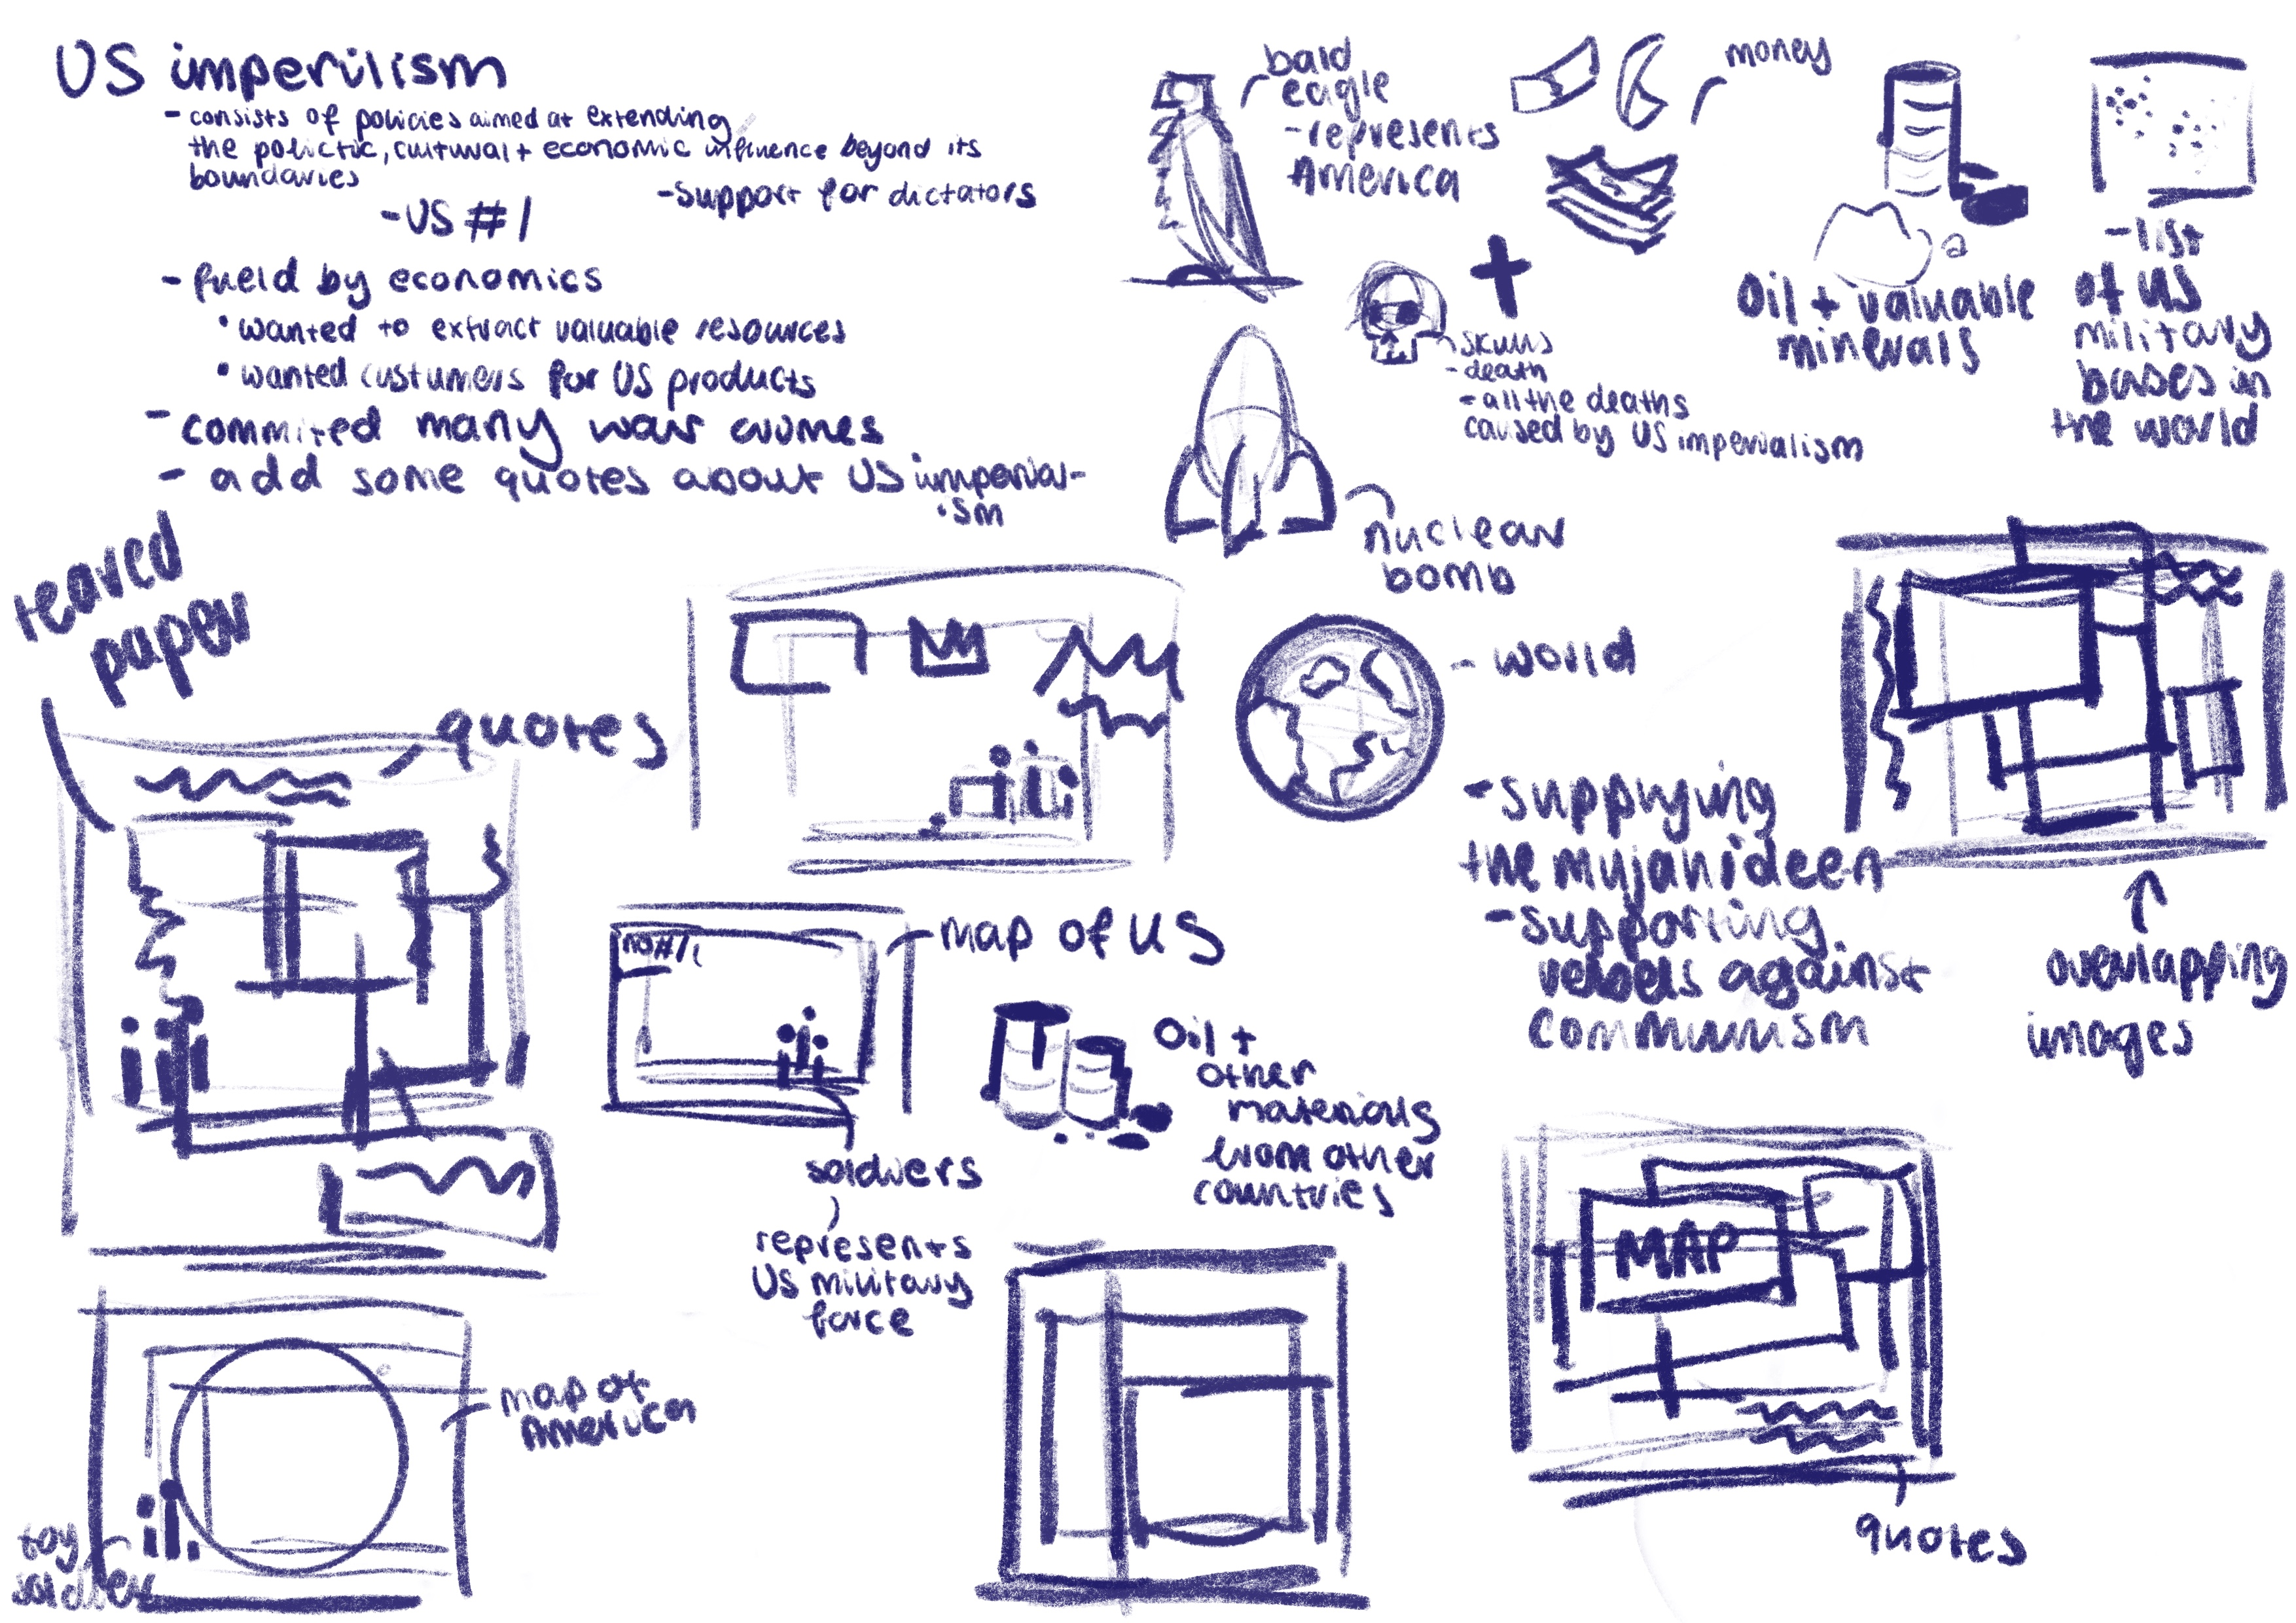 US imperilism
- consists of policies aimed at extending
the polictic, cultural + economic influence beyond its
boundaries
- support for dictators
- US #1
- fueld by economics
• wanted to extract valuable resources
• wanted custumers for US products
- commited many war crimes
- add some quotes about US imperial-
ism
bald
eagle
- represents
America
money
Oil + valuable
minerals
- list
of US
military
bases in
the world
skulls
- death
- all the deaths
caused by US imperialism
nuclear
bomb
teared
paper
quotes
- world
- supplying
the mujahideen
- supporting
rebels against
communism
overlapping
images
map of US
soldiers
represents
US military
force
Oil +
other
materials
from other
countries
MAP
quotes
map of
America
toy
soldier